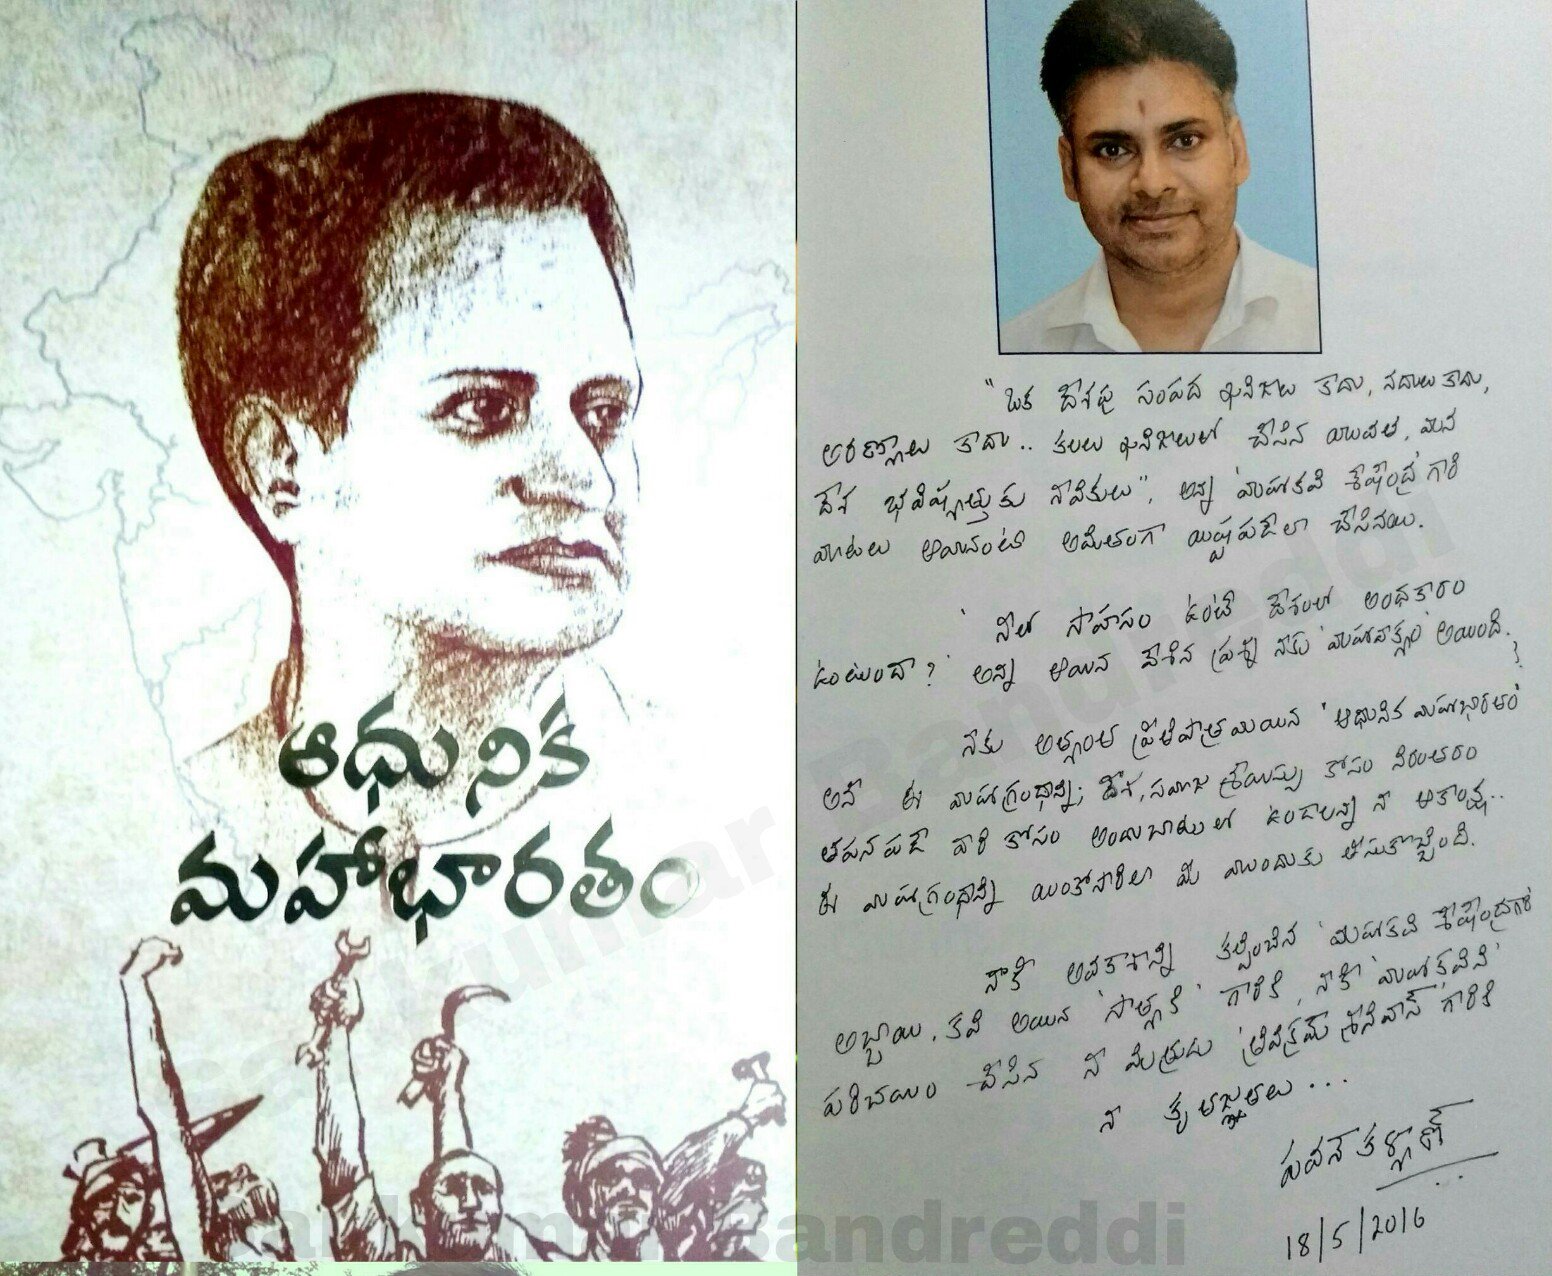 ఆధునిక
మహాభారతం
"ఒక దేశపు సంపద ఖనిజాలు కాదు, నదులు కాదు,
అరణ్యాలు కాదు.. కలలు ఖనిజాలలో చేసిన యువత, మన
దేశ భవిష్యత్తుకు నావికులు", అన్న 'మహాకవి శేషేంద్ర' గారి
మాటలు ఆయనంటే అమితంగా యిష్టపడేలా చేసినయి.
'నీలో సాహసం ఉంటే దేశంలో అంధకారం
ఉంటుందా?' అన్న ఆయన వేసిన ప్రశ్న నాకు 'మహావాక్యం' అయింది.
నాకు అత్యంత ప్రీతిపాత్రమయిన 'ఆధునిక మహాభారతం'
అనే ఈ మహాగ్రంథాన్ని; దేశ, సమాజ శ్రేయస్సు కోసం నిరంతరం
తపన పడే వారి కోసం అందుబాటులో ఉండాలన్న నా ఆకాంక్ష..
ఈ మహాగ్రంథాన్ని యింకోసారిలా మీ ముందుకు తీసుకొచ్చింది.
నాకీ అవకాశాన్ని కల్పించిన 'మహాకవి శేషేంద్ర' గారి
అబ్బాయి, కవి అయిన 'సాత్యకి' గారికి, నాకీ 'మహాకవిని'
పరిచయం చేసిన నా మిత్రుడు 'త్రివిక్రమ్ శ్రీనివాస్' గారికి
నా కృతజ్ఞతలు ...
పవన్ కళ్యాణ్
18/5/2016
Sai kumar Bandreddi
Sai kumar Bandreddi